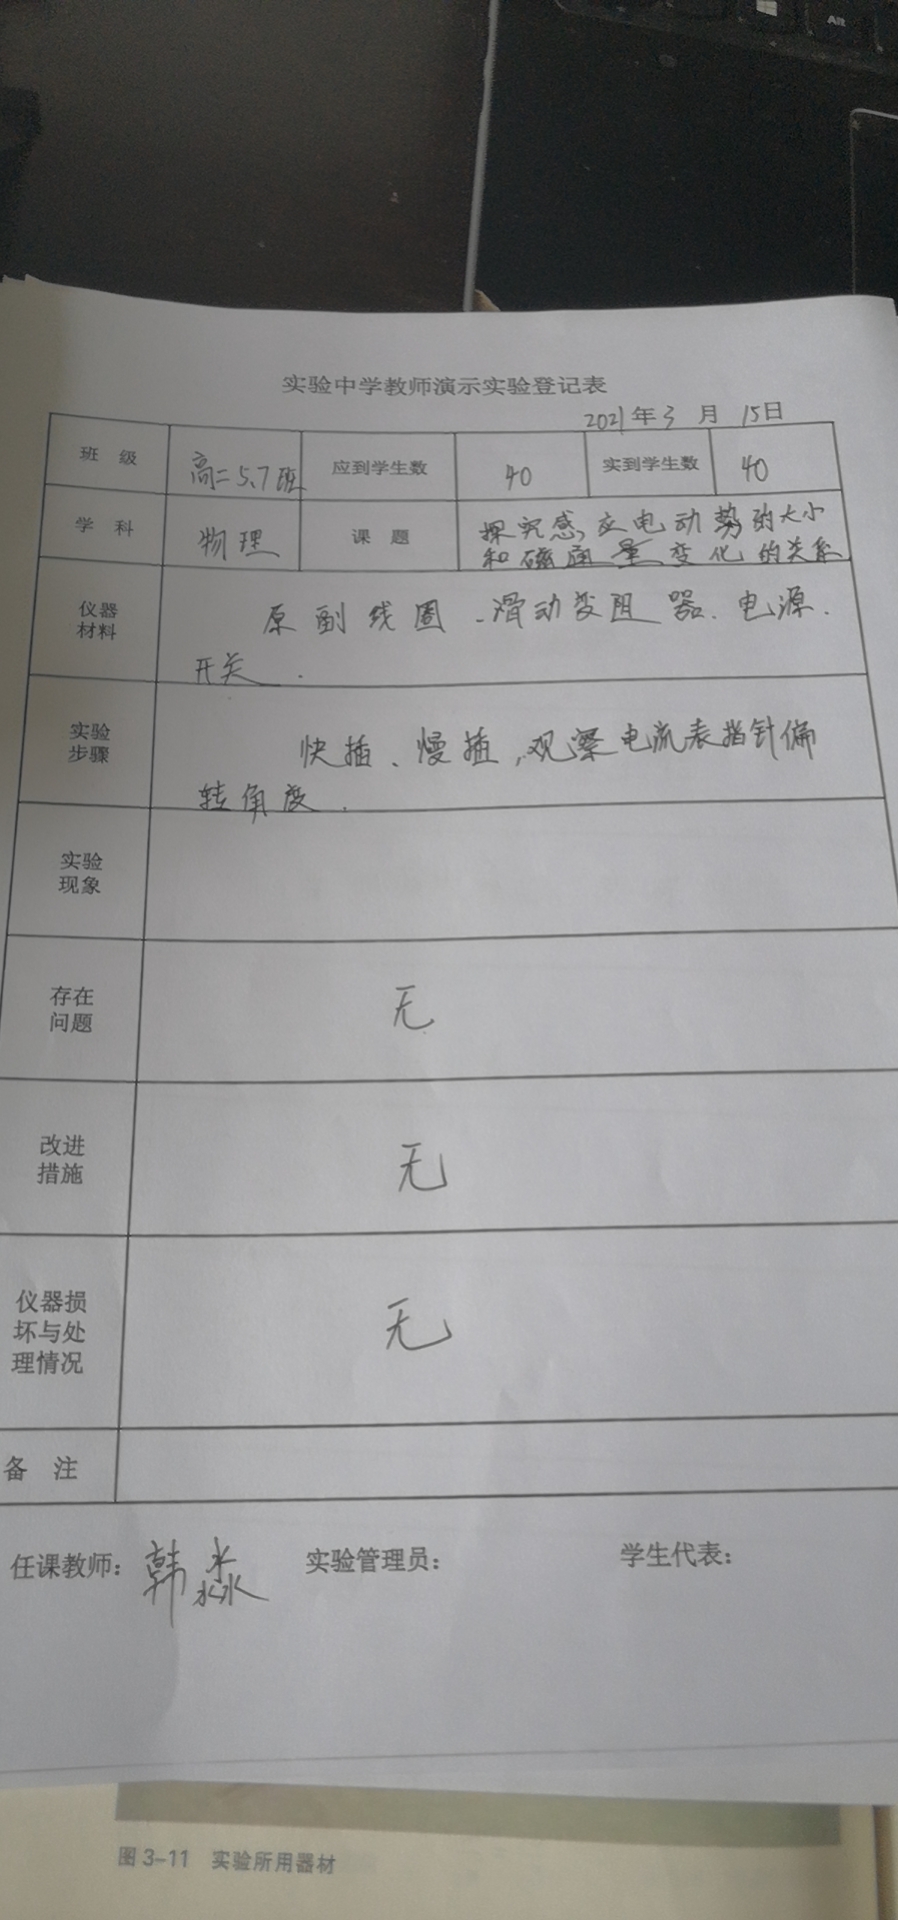 Alt
实验中学教师演示实验登记表
2021年3月15日
班级 高二5.7班 应到学生数 40 实到学生数 40
学科 物理 课题 探究感应电动势的大小
和磁通量变化的关系
仪器
材料
原副线圈、滑动变阻器、电源、
开关.
实验
步骤
快插、慢插,观察电流表指针偏
转角度.
实验
现象
存在
问题
无
改进
措施
无
仪器损
坏与处
理情况
无
备注
任课教师: 韩淼 实验管理员: 学生代表:
图3-11 实验所用器材